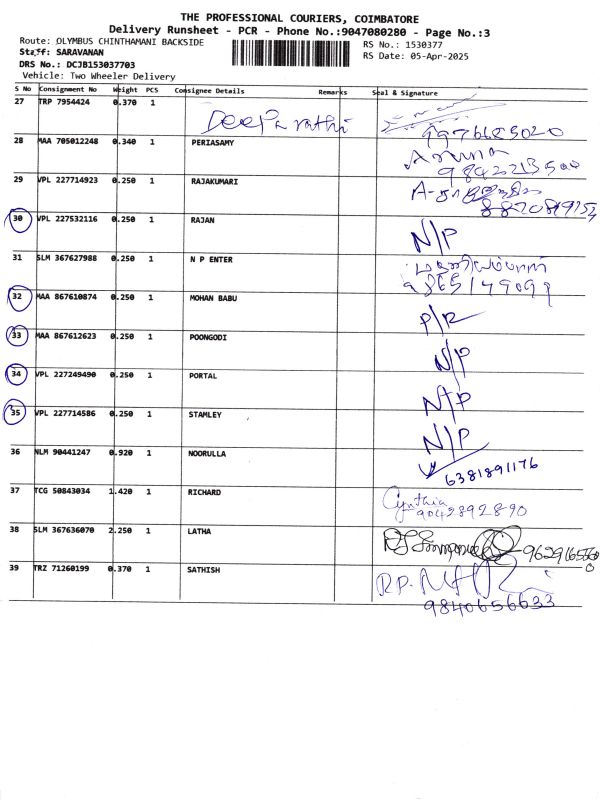 THE PROFESSIONAL COURIERS, COIMBATORE
Delivery Runsheet - PCR - Phone No.:9047080280 - Page No.:3
Route: OLYMBUS CHINTHAMANI BACKSIDE RS No.: 1530377
Staff: SARAVANAN RS Date: 05-Apr-2025
DRS No.: DCJB153037703
Vehicle: Two Wheeler Delivery
S No Consignment No Weight PCS Consignee Details Remarks Seal & Signature
27 TRP 7954424 0.370 1
28 MAA 705012248 0.340 1 PERIASAMY
29 VPL 227714923 0.250 1 RAJAKUMARI
30 VPL 227532116 0.250 1 RAJAN N/P
31 SLM 367627988 0.250 1 N P ENTER
32 MAA 867610874 0.250 1 MOHAN BABU P/R
33 MAA 867612623 0.250 1 POONGODI N/P
34 VPL 227249490 0.250 1 PORTAL N/P
35 VPL 227714586 0.250 1 STAMLEY N/P
36 NLM 90441247 0.920 1 NOORULLA 6381891176
37 TCG 50843034 1.420 1 RICHARD Cynthia
9042892890
38 SLM 367636070 2.250 1 LATHA
39 TRZ 71260199 0.370 1 SATHISH
9840656633